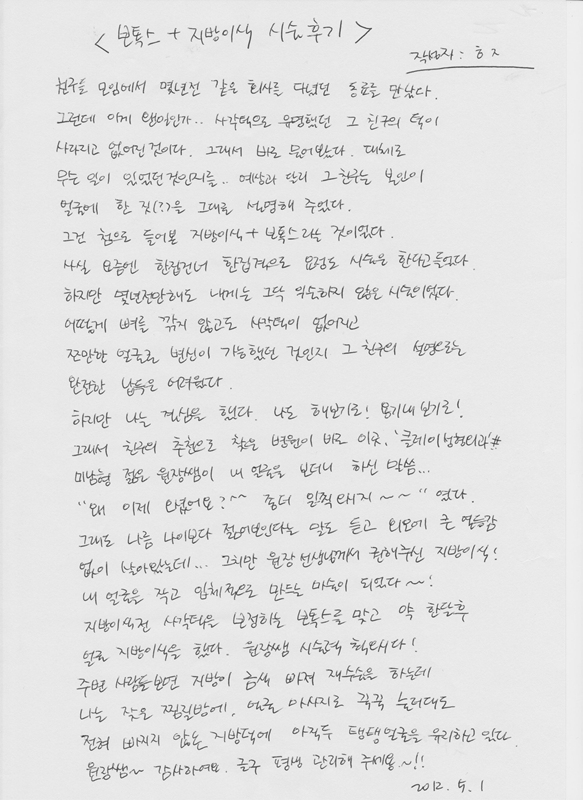 < 보톡스 + 지방이식 시술후기 >
작성자 : ㅎㅈ
친구들 모임에서 몇년전 같은 회사를 다녔던 동료를 만났다.
그런데 이게 웬일인가.. 사각턱으로 유명했던 그 친구의 턱이
사라지고 없어진 것이다. 그래서 바로 물어봤다. 대체로
무슨 일이 있었던 것인지를.. 예상과 달리 그 친구는 본인이
얼굴에 한 짓(??)을 그대로 설명해 주었다.
그건 첨으로 들어본 지방이식 + 보톡스라는 것이었다.
사실 요즘엔 한집건너 한집격으로 요정도 시술은 한다고들었다.
하지만 몇년전만해도 내게는 그닥 익숙하지 않은 시술이었다.
어떻게 뼈를 깎지 않고도 사각턱이 없어지고
쪼만한 얼굴로 변신이 가능했던 것인지 그 친구의 설명으로는
완전한 납득은 어려웠다.
하지만 나는 결심을 했다. 나도 해보기로! 용기내 보기로!
그래서 친구의 추천으로 찾은 병원이 바로 이곳, '클레이성형외과'#
미남형 젊은 원장쌤이 내 얼굴을 보더니 하신 말씀...
"왜 이제 와썼어요?^^ 좀더 일찍 와시지~~" 였다.
그래도 나름 나이보다 젊어보인다는 말도 듣고 외모에 큰 열등감
없이 살아왔는데... 그치만 원장선생님께서 권해주신 지방이식!
내 얼굴을 작고 입체적으로 만드는 마술이 되었다~!
지방이식전 사각턱을 보정하는 보톡스를 맞고 약 한달후
얼굴 지방이식을 했다. 원장쌤 시술력 최고시다!
주변 사람들보면 지방이 금새 빠져 재수술을 하는데
나는 잦은 찜질방에, 얼굴 마사지로 꾹꾹 눌러대도
전혀 빠지지 않는 지방덕에 아직두 탱탱얼굴을 유지하고 있다.
원장쌤~ 감사하여요. 글구 평생 관리해 주세용~!!
2012. 5. 1